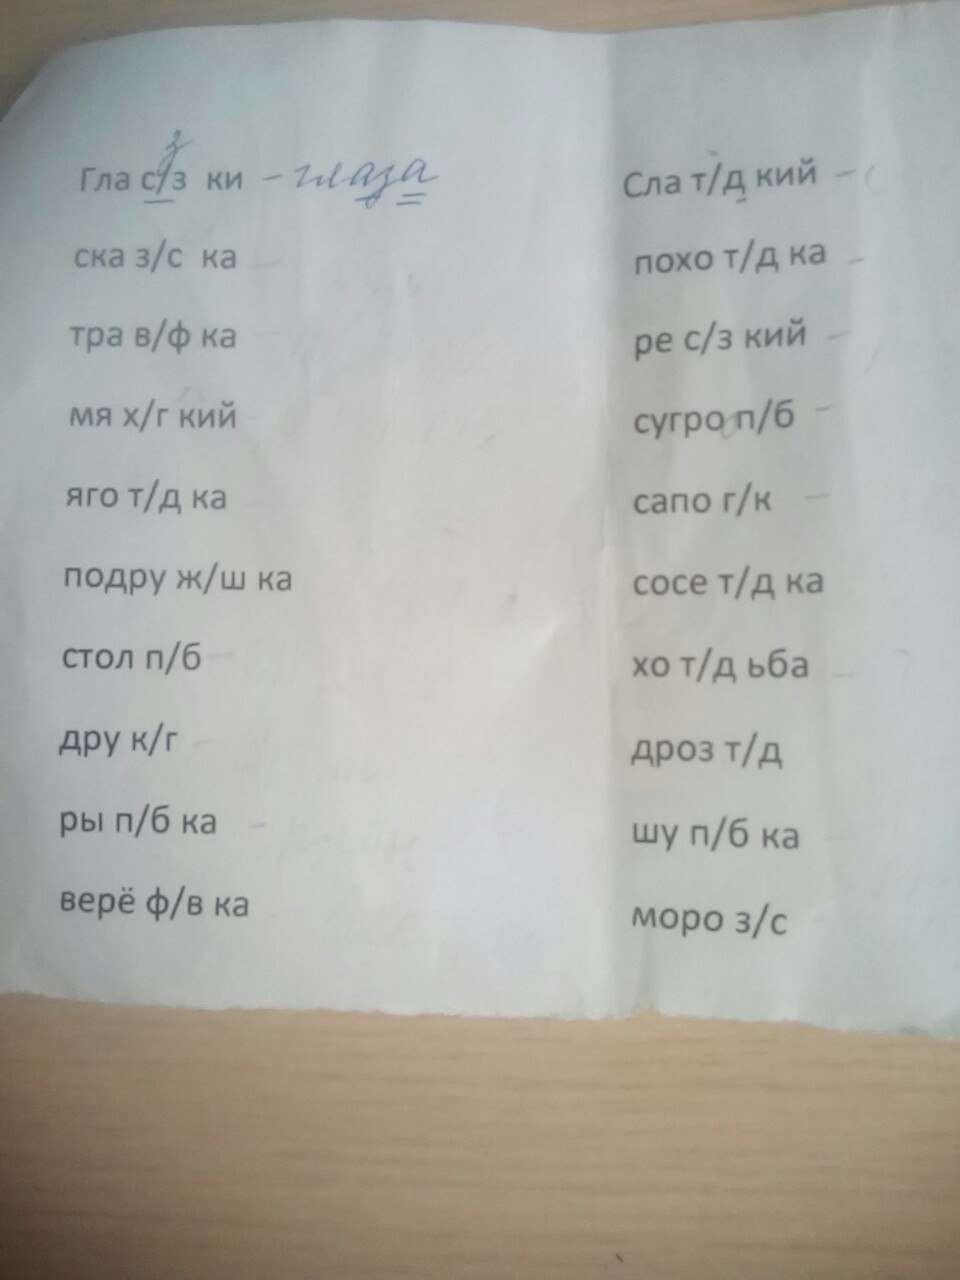 Гла с/з ки – глаза
з
ска з/с ка
тра в/ф ка
мя х/г кий
яго т/д ка
подру ж/ш ка
стол п/б
дру к/г
ры п/б ка -
верё ф/в ка
Сла т/д кий -
похо т/д ка -
ре с/з кий -
сугро п/б -
сапо г/к -
сосе т/д ка
хо т/д ьба -
дроз т/д
шу п/б ка -
моро з/с